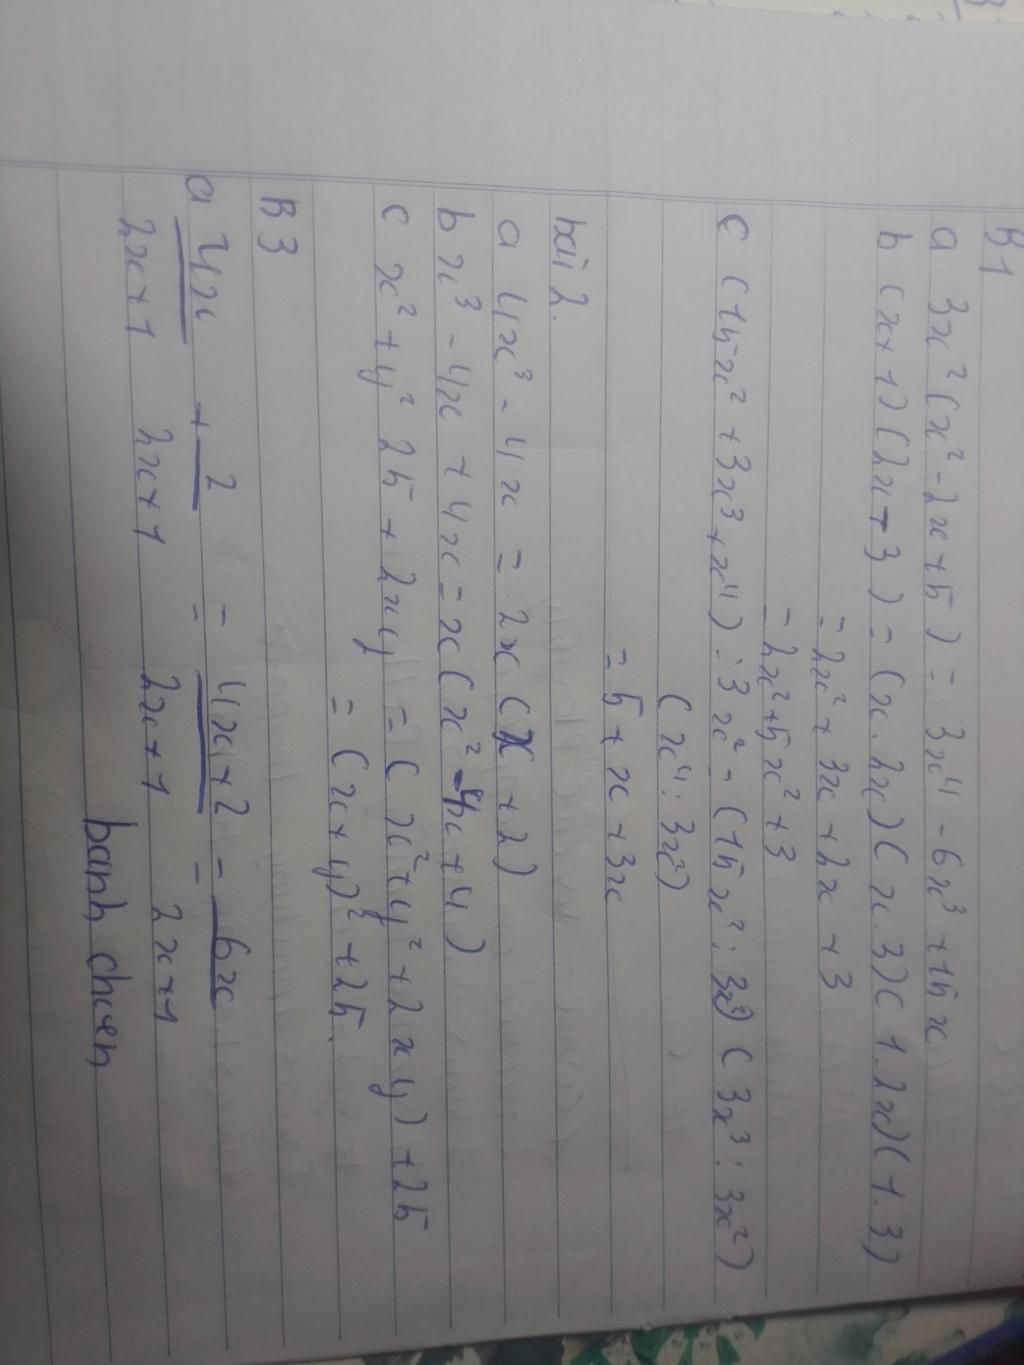 B1
a 3x² (x² - 2x + 5) = 3x⁴ - 6x³ + 15x
b (x+1)(2x+3) = (x.2x)(x.3)(1.2x)(1.3)
= 2x² + 3x + 2x + 3
= 2x² + 5x² + 3
c (15x² + 3x³ + x⁴) : 3x² = (15x² : 3x²) (3x³ : 3x²)
(x⁴ : 3x²)
= 5 + x + 3x
bài 2.
a 4x³ - 4x = 2x (x + 2)
b x³ - 4x + 4x = x (x² - 4x + 4)
c x² + y² 25 + 2xy = (x² + y² + 2xy) + 25
= (x + y)² + 25.
B3
a 4x + 2 = 4x + 2 = 6x
2x+1 2x+1 2x+1 2x+1
banh chien